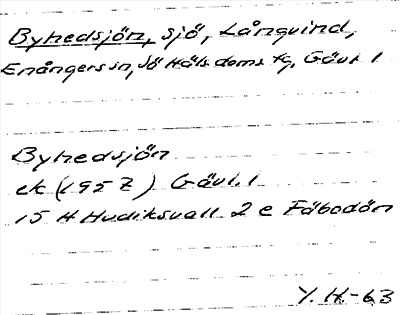 Byhedsjön, sjö, Långvind,
Enångers sn, Sö Häls doms fg, Gävl. l
Byhedsjön
ek (1957) Gävl. l
15 H Hudiksvall 2 e Fäbodön
Y. H.-63